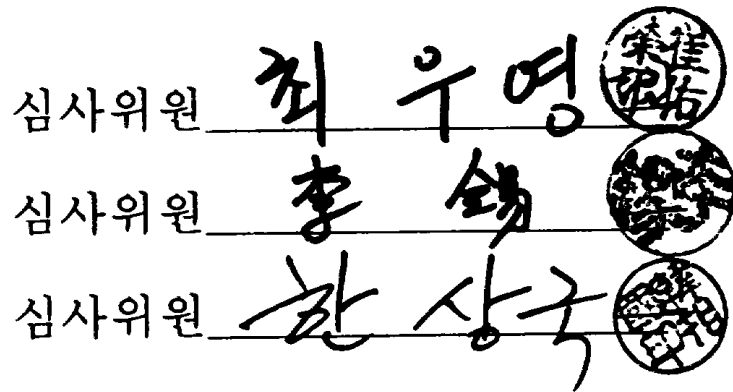 심사위원 최우영
심사위원 李錫
심사위원 한상국